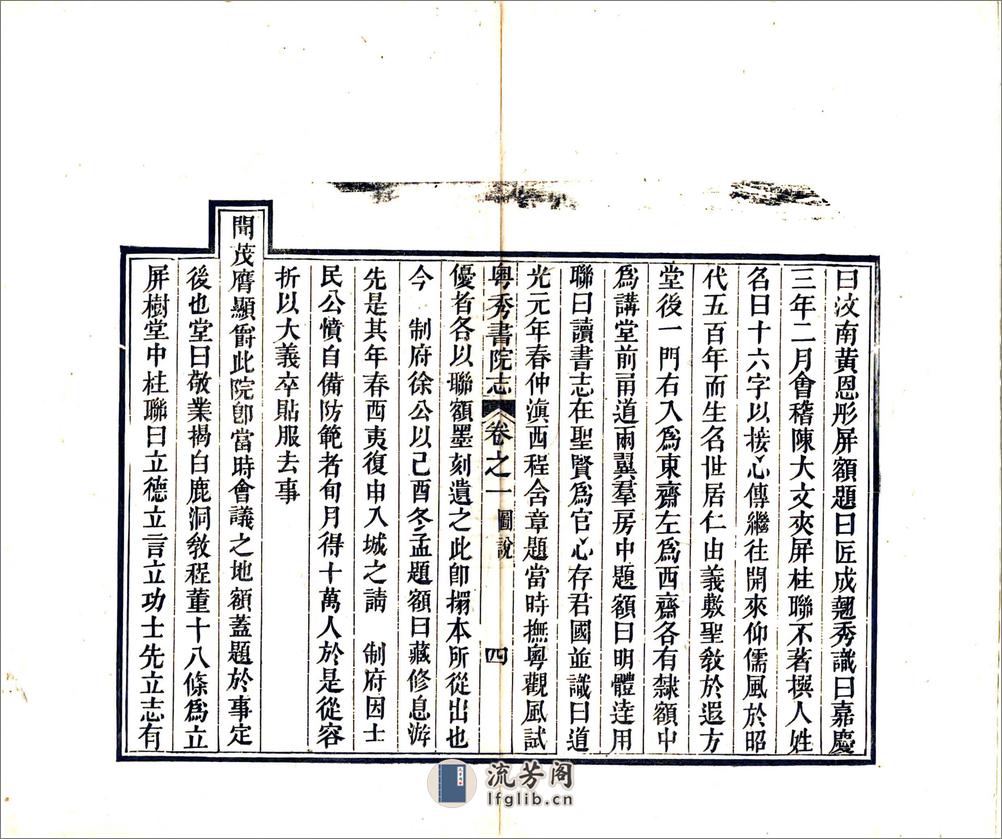 曰汶南黃恩彤屏額題曰匠成翹秀識曰嘉慶
三年二月會稽陳大文夾屏柱聯不著撰人姓
名曰十六字以接心傳繼往開來仰儒風於昭
代五百年而生名世居仁由義敷聖敎於遐方
堂後一門右入爲東齋左爲西齋各有隸額中
爲講堂前甬道兩翼羣房中題額曰明體達用
聯曰讀書志在聖賢爲官心存君國並識曰道
光元年春仲滇西程含章題當時撫粵觀風試
粵秀書院志 卷之一 圖說 四
優者各以聯額墨刻遺之此卽搨本所從出也
今 制府徐公以己酉冬孟題額曰藏修息游
先是其年春西夷復申入城之請 制府因士
民公憤自備防範者旬月得十萬人於是從容
折以大義卒貼服去事
聞茂膺顯爵此院卽當時會議之地額蓋題於事定
後也堂曰敬業揭白鹿洞敎程董十八條爲立
屏樹堂中柱聯曰立德立言立功士先立志有
流芳阁
lfglib.cn